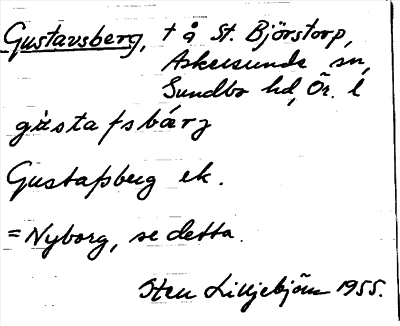 Gustavsberg, † å St. Björstorp,
Askersunds sn,
Sundbo hd, Ör. l
gùstafsbárj
Gustafsberg ek.
= Nyborg, se detta.
Sten Lilljebjörn 1955.